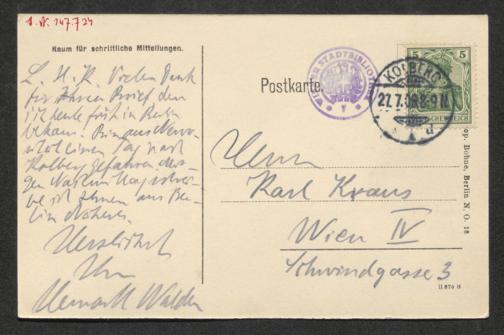 I.N. 147.724
Raum für schriftliche Mitteilungen.
L. H. K. Vielen Dank
für Ihren Brief, den
ich heute früh in Berlin
bekam. Bin aus Nervo-
sität einen Tag nach
Kolberg gefahren. Mor-
gen Nachm
be ich Ihnen aus Ber-
lin Näheres.
Herzlichst
Ihr
Herwarth Walden
Postkarte.
WIENER STADTBIBLIOTHEK
KOLBERG
27.7.09.8-9N.
d
5 5
DEUTSCHES REICH
Herrn
Karl Kraus
Wien IV
Schwindgasse 3
Bohne, Berlin N. O. 18
11876 B